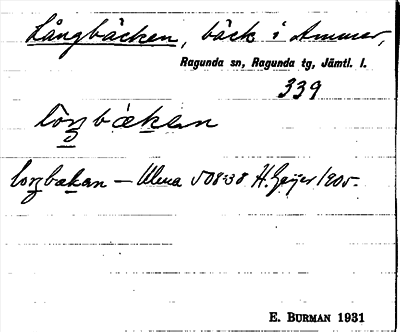 Långbäcken, bäck i Ammer,
Ragunda sn, Ragunda tg, Jämtl. l.
339
bækan
bækan — Ulma 508:38 H. Geijer 1905.
E. BURMAN 1931